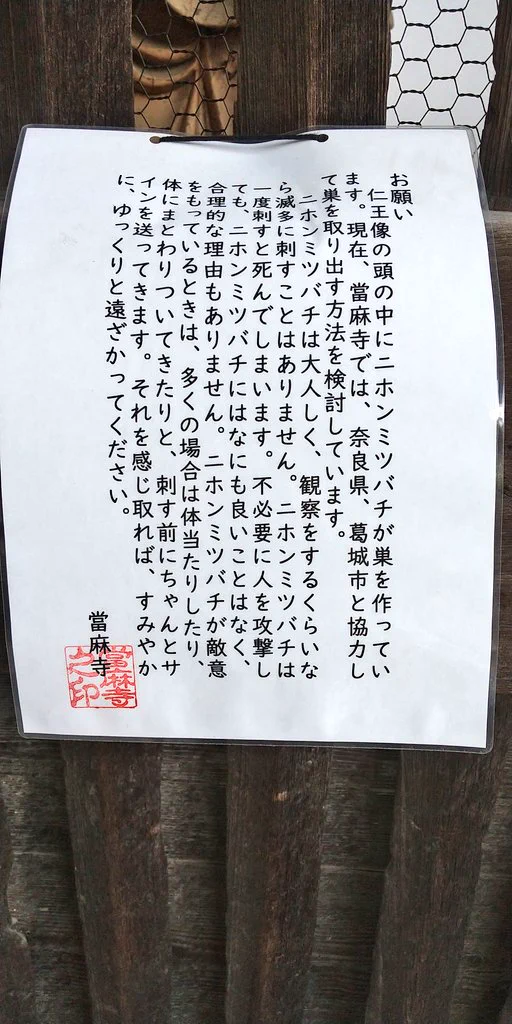 お願い
仁王像の頭の中にニホンミツバチが巣を作ってい
ます。現在、當麻寺では、奈良県、葛城市と協力し
て巣を取り出す方法を検討しています。
ニホンミツバチは大人しく、観察をするくらいな
ら滅多に刺すことはありません。ニホンミツバチは
一度刺すと死んでしまいます。不必要に人を攻撃し
ても、ニホンミツバチにはなにも良いことはなく、
合理的な理由もありません。ニホンミツバチが敵意
をもっているときは、多くの場合は体当たりしたり、
体にまとわりついてきたりと、刺す前にちゃんとサ
インを送ってきます。それを感じ取れば、すみやか
に、ゆっくりと遠ざかってください。
當麻寺
當麻寺
之印